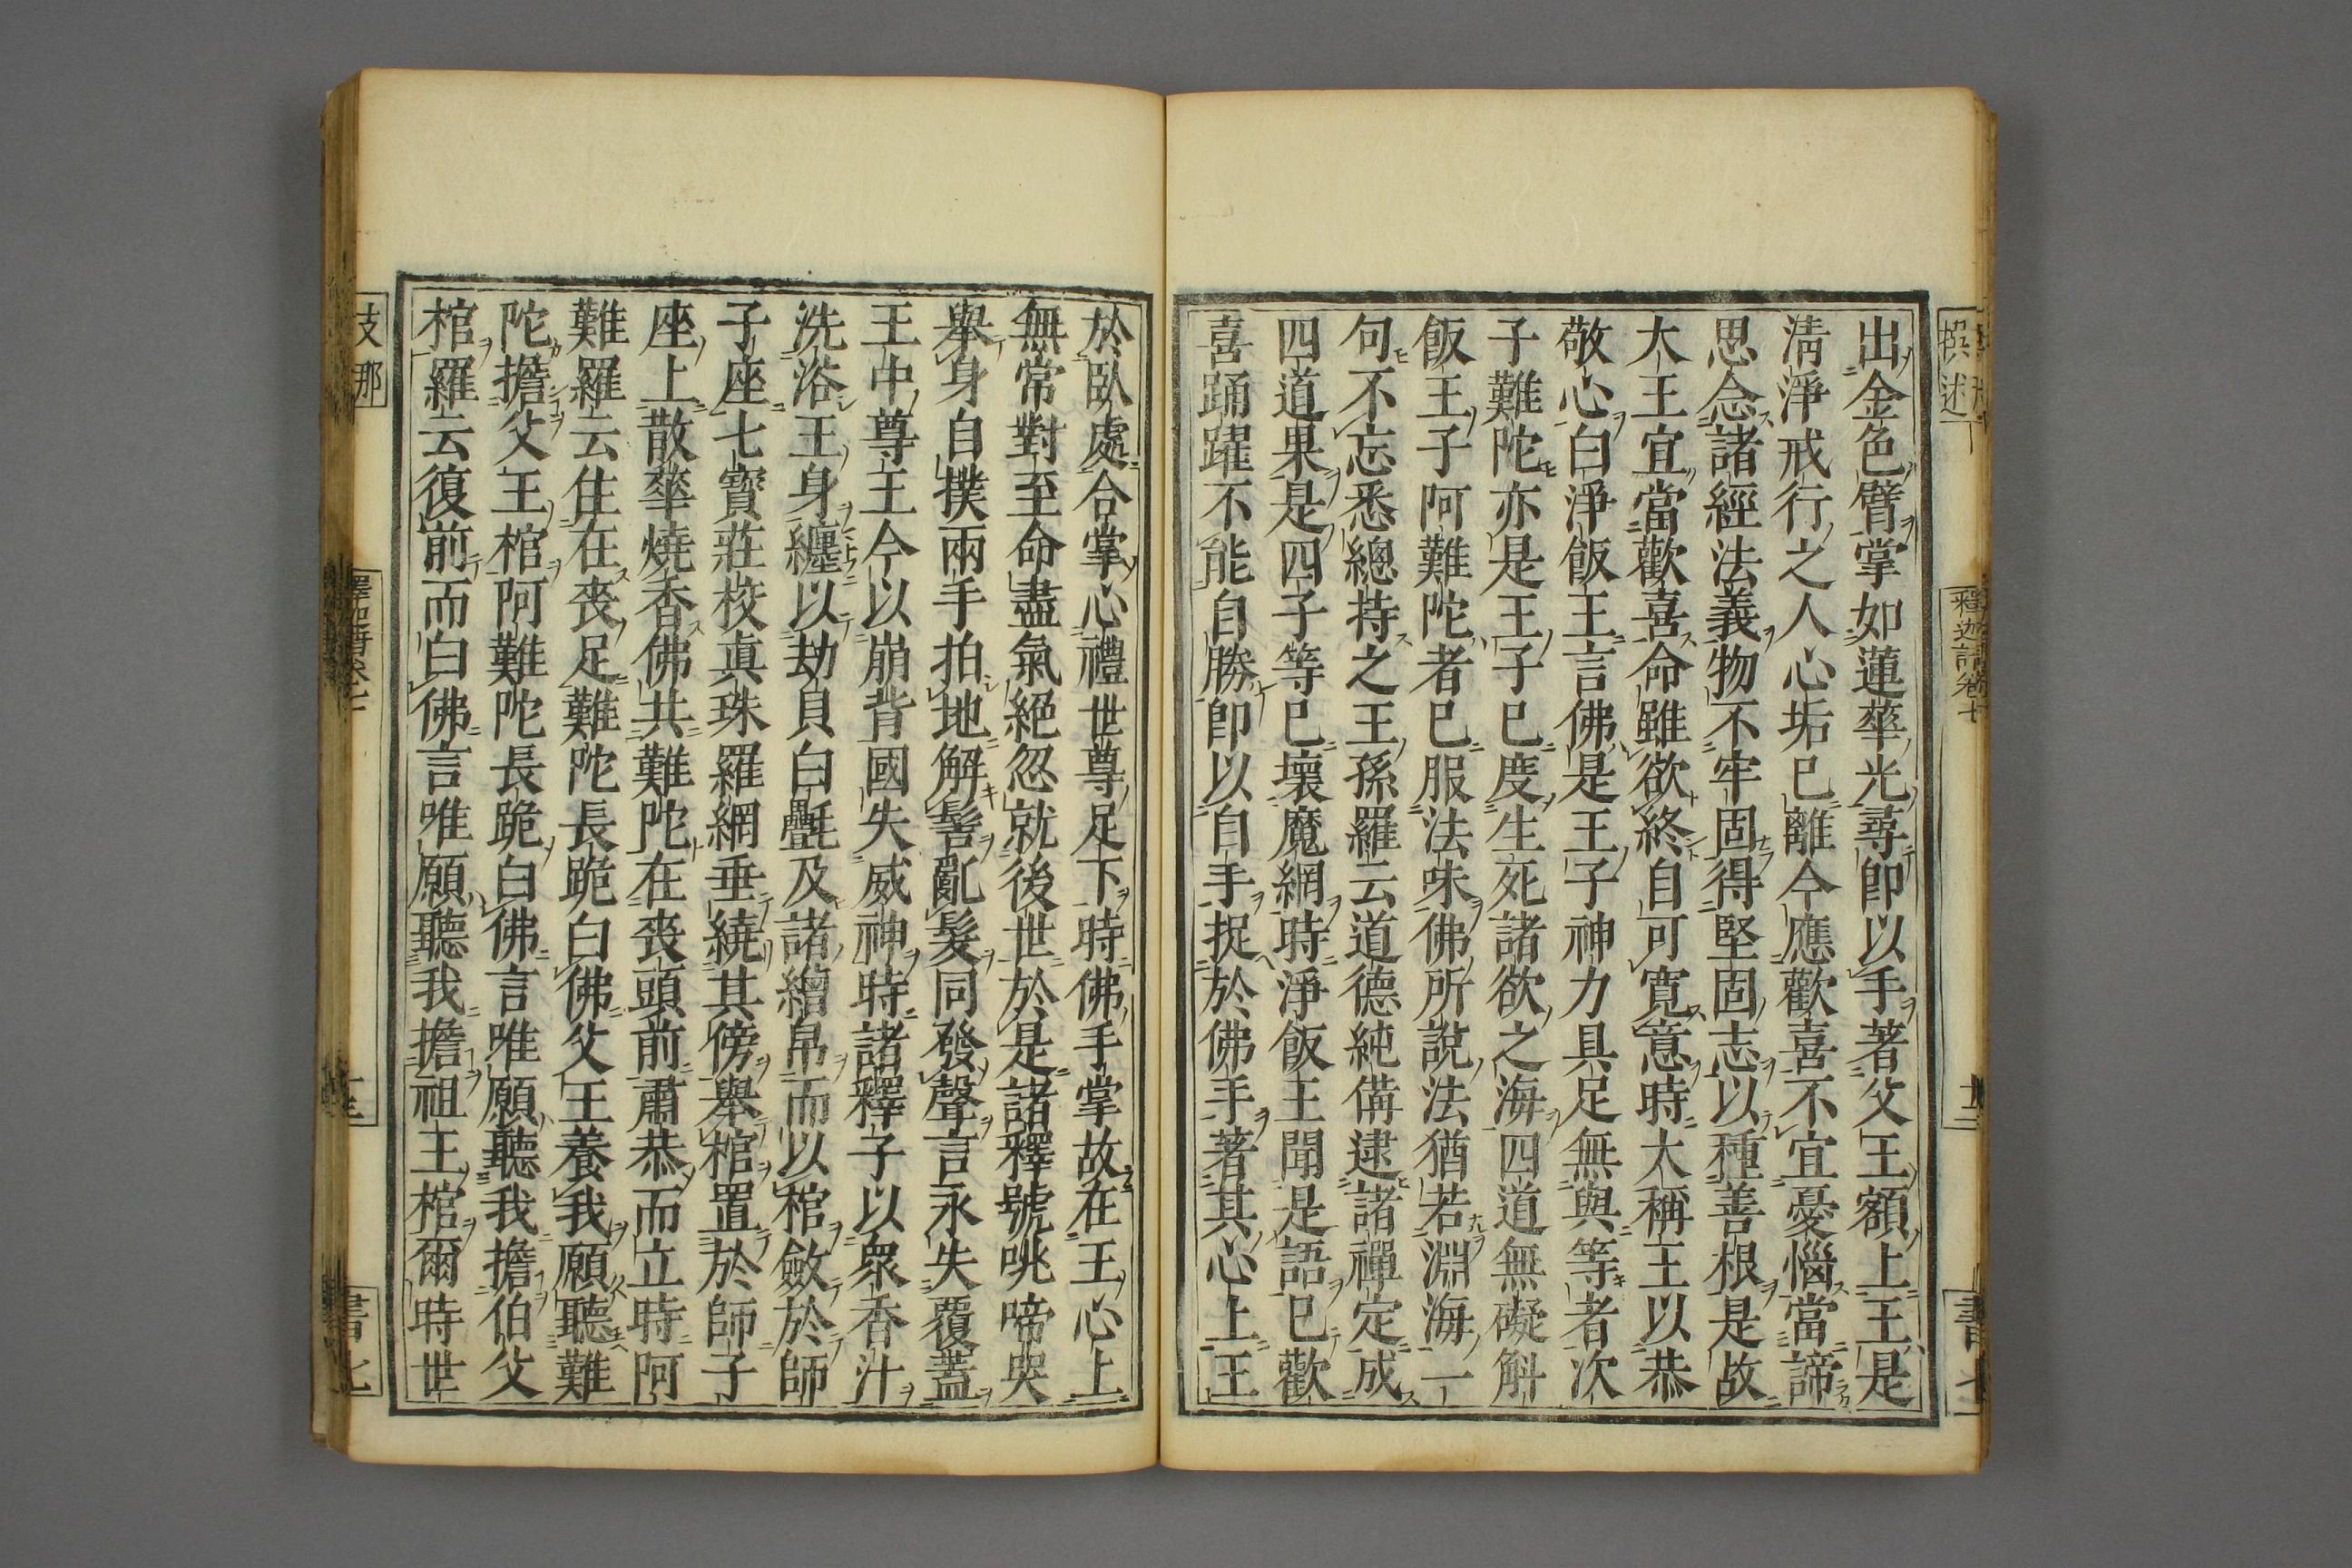 出金色臂掌如蓮華光尋卽以手著父王額上王是
淸淨戒行之人心垢已離今應歡喜不宜憂惱當諦
思念諸經法義物不牢固得堅固志以種善根是故
大王宜當歡喜命雖欲終自可寬意時大稱王以恭
敬心白淨飯王言佛是王子神力具足無與等者次
子難陀亦是王子已度生死諸欲之海四道無礙斛
飯王子阿難陀者已服法味佛所說法猶若淵海一
句不忘悉總持之王孫羅云道德純備逮諸禪定成
四道果是四子等已壞魔網時淨飯王聞是語已歡
喜踊躍不能自勝卽以自手捉於佛手著其心上王
於臥處合掌心禮世尊足下時佛手掌故在王心上
無常對至命盡氣絕忽就後世於是諸釋號咷啼哭
舉身自撲兩手拍地解髻亂髮同發聲言永失覆蓋
王中尊王今以崩背國失威神時諸釋子以衆香汁
洗浴王身纏以劫貝白氎及諸繒帛而以棺斂於師
子座七寶莊校眞珠羅網垂繞其傍舉棺置於師子
座上散華燒香佛共難陀在喪頭前肅恭而立時阿
難羅云住在喪足難陀長跪白佛父王養我願聽難
陀擔父王棺阿難陀長跪白佛言唯願聽我擔伯父
棺羅云復前而白佛言唯願聽我擔祖王棺爾時世